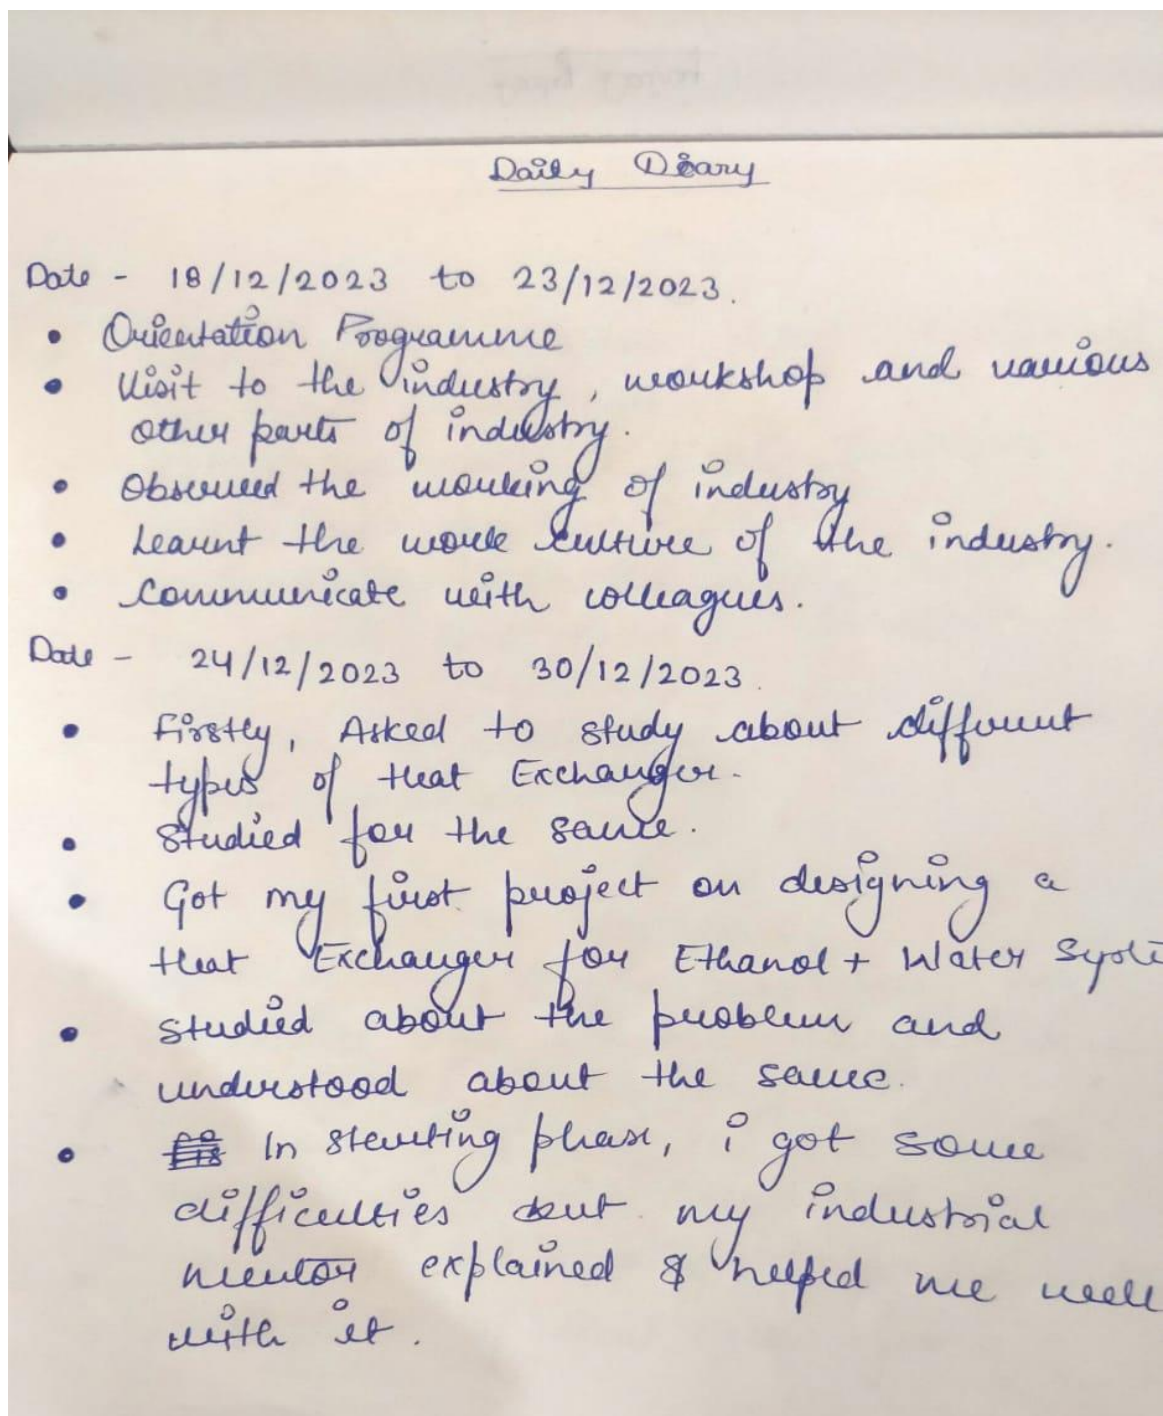 Daily Diary
Date - 18/12/2023 to 23/12/2023.
• Orientation Programme
• Visit to the industry, workshop and various
other parts of industry.
• Observed the working of industry
• Learnt the work culture of the industry.
• Communicate with colleagues.
Date - 24/12/2023 to 30/12/2023.
• Firstly, Asked to study about different
types of Heat Exchanger.
• Studied for the same.
• Got my first project on designing a
Heat Exchanger for Ethanol + Water
• Studied about the problem and
understood about the same.
• In starting phase, i got some
difficulties but my industrial
mentor explained & helped me well
with it.